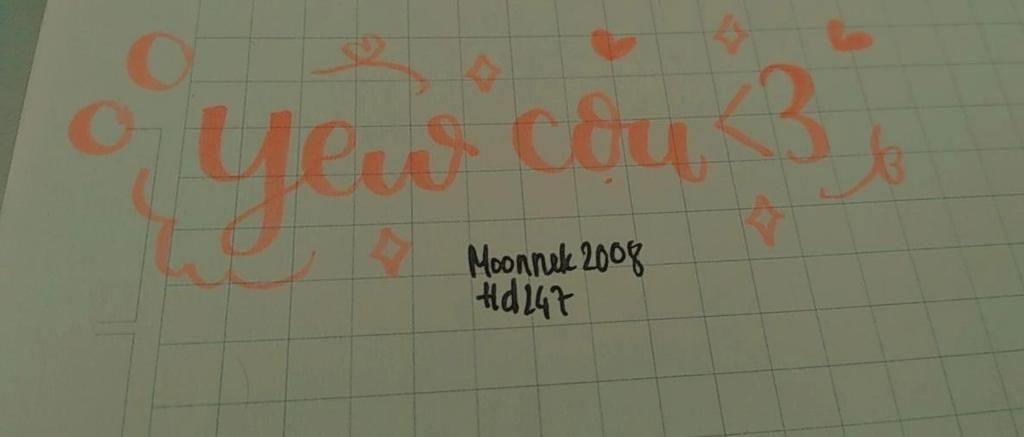 yew cọu <3
Moonnek2008
Hd247